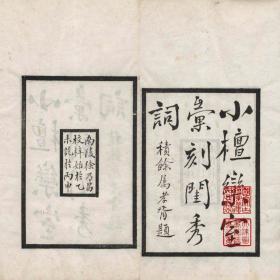 小檀欒室
彙刻閨秀
詞
積餘屬孝胥題
南陵徐乃昌
校梓始於乙
未訖於丙申